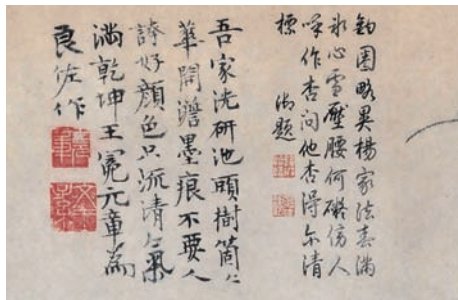 鈎圈略異楊家法春滿
冰心雪壓腰何礙傍人
喚作杏問他杏得尔清
標
御題
吾家洗研池頭樹箇〻
華開澹墨痕不要人
誇好顏色只流清氣
滿乾坤王冕元章為
良佐作